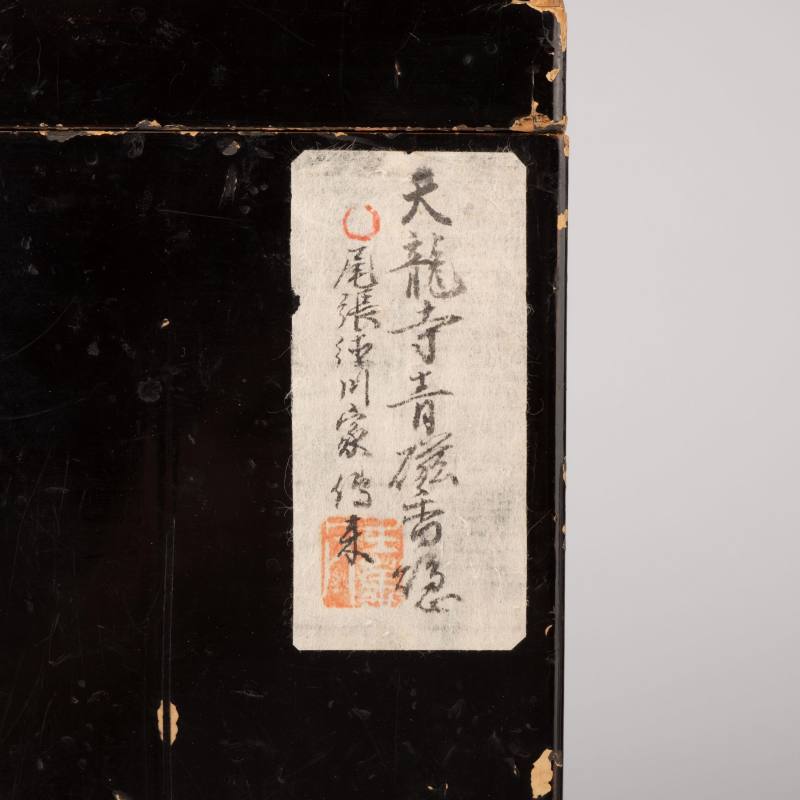 天龍寺青磁香爐
尾張徳川家傳来